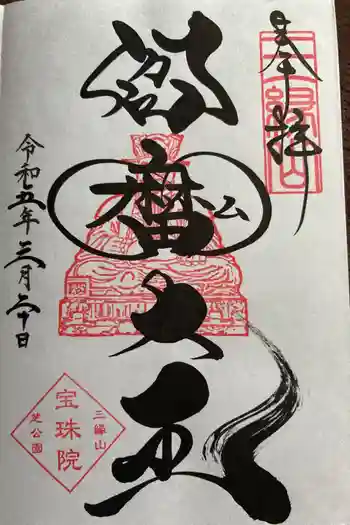 奉拝
閻魔大王
令和五年三月二十日
三緣山
宝珠院
芝公園